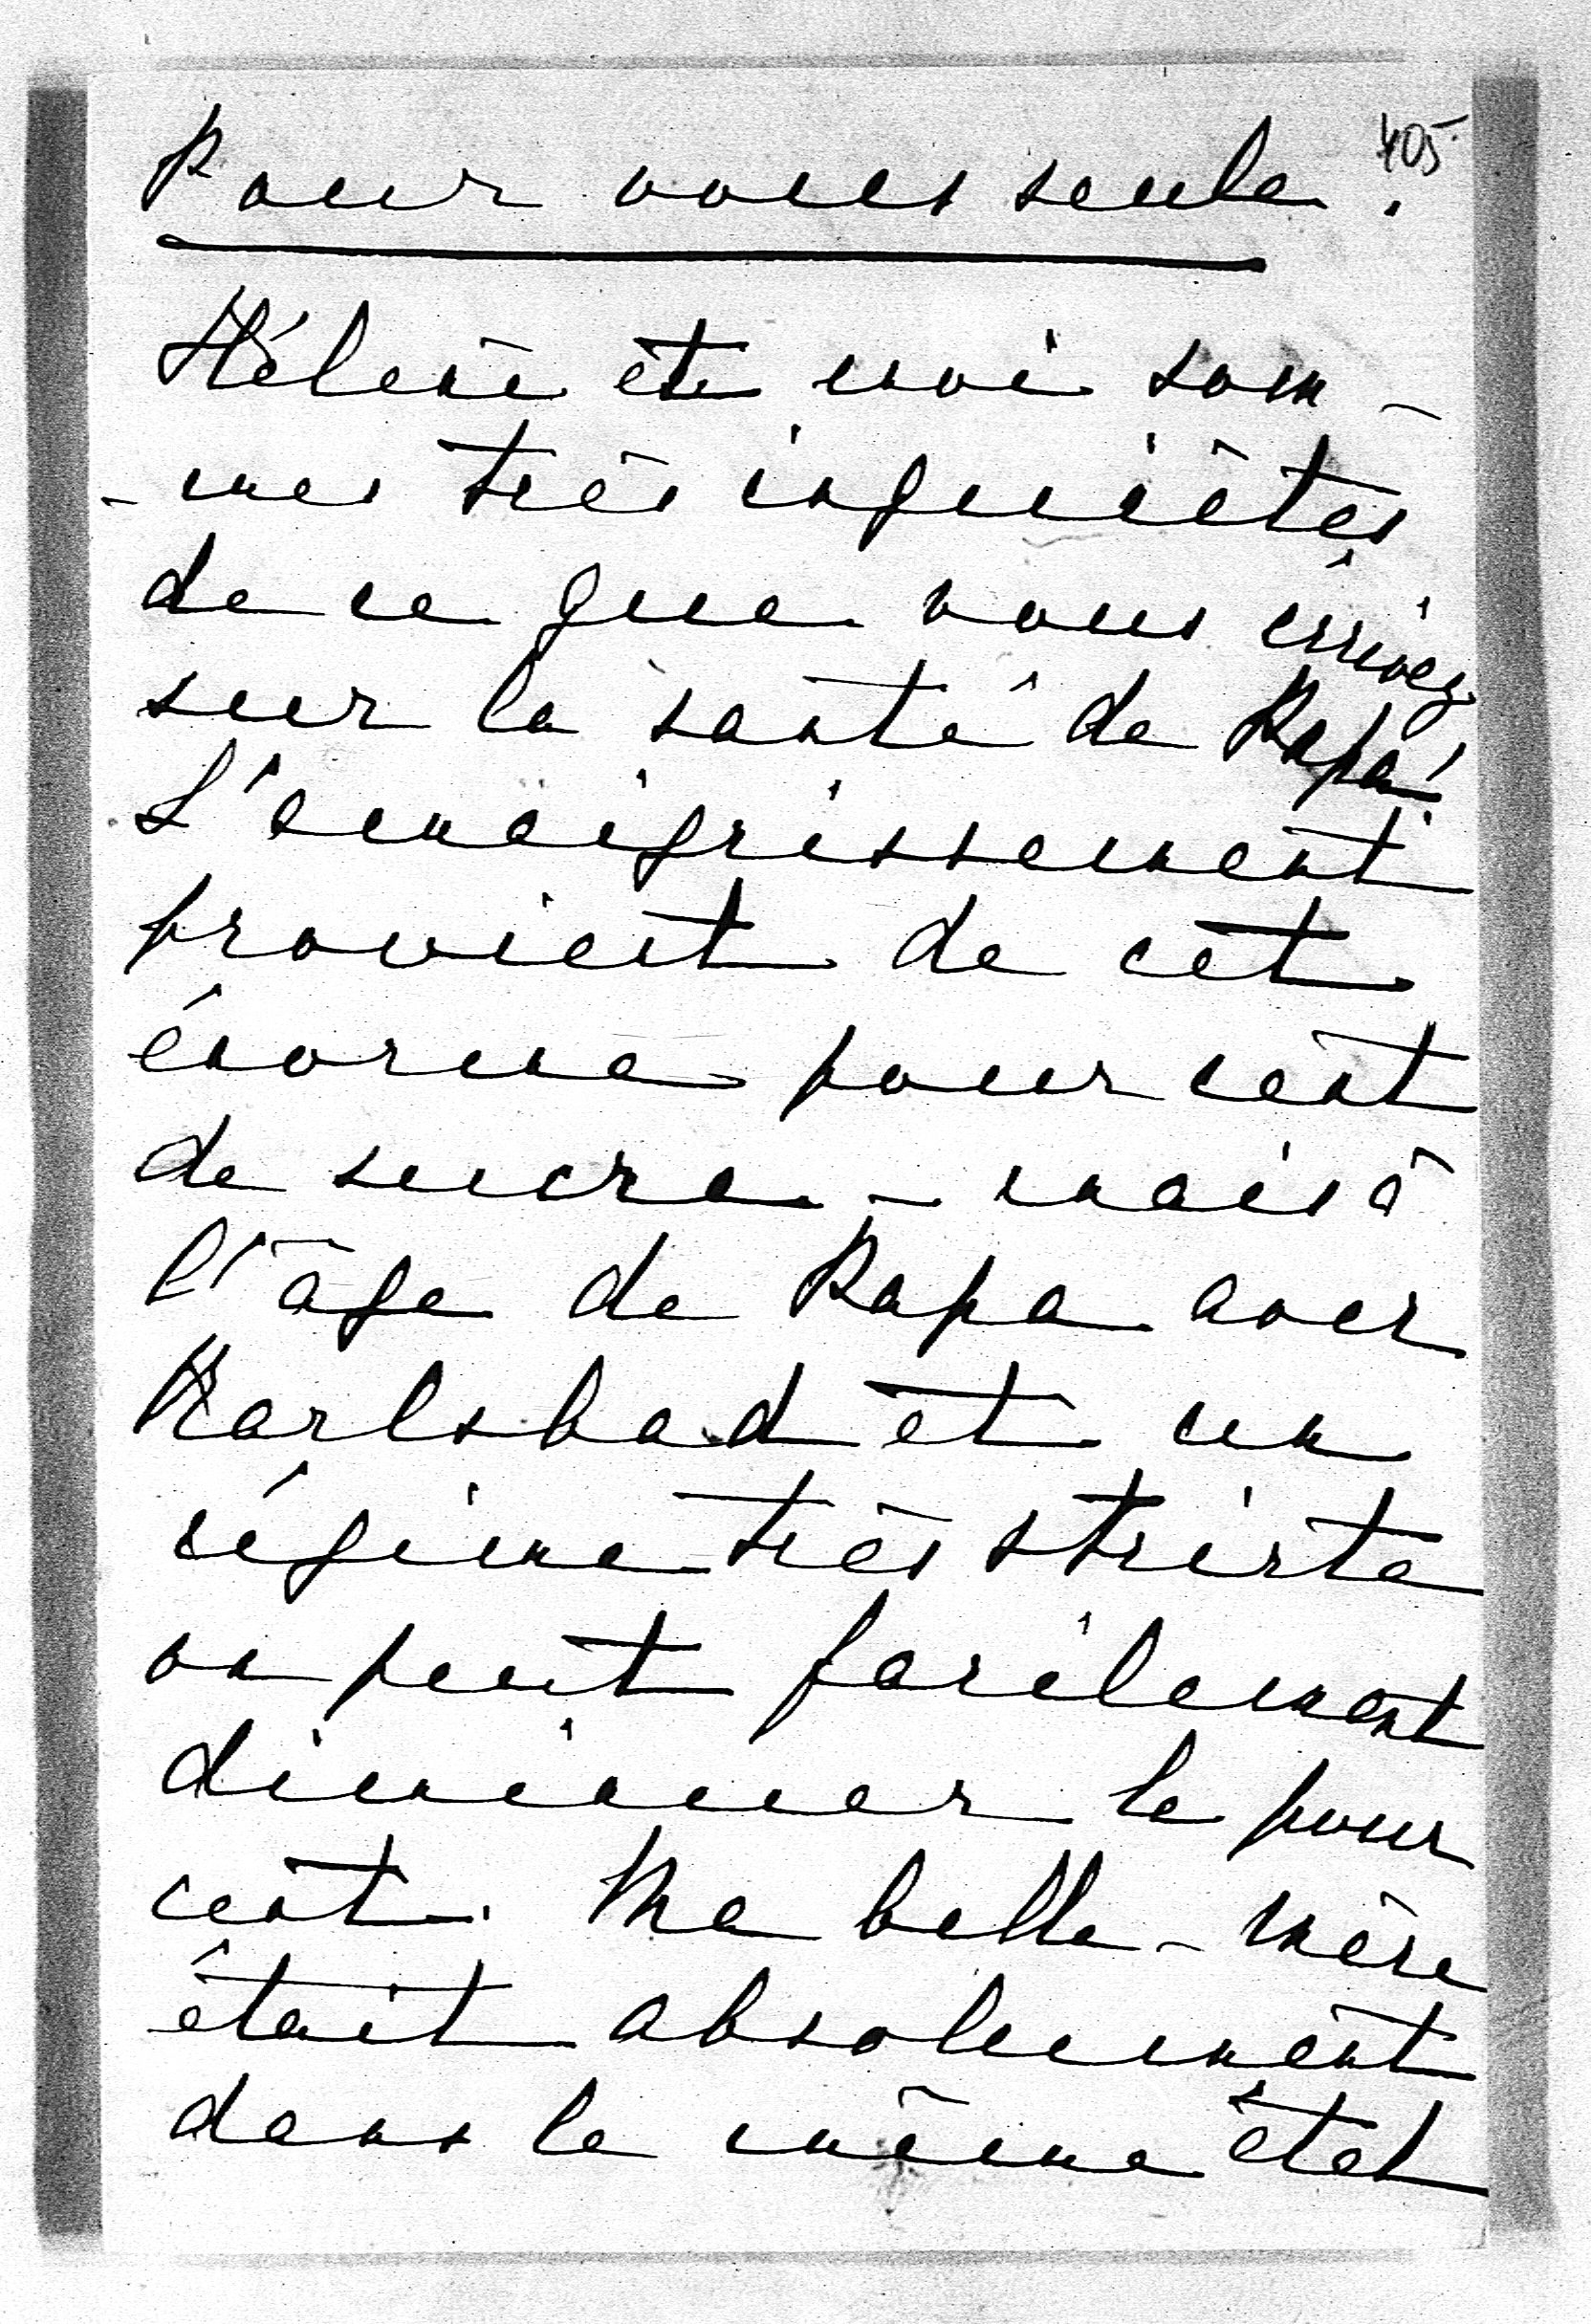 405
Pour vous seule.
Hélène et moi som-
-mes très inquiètes
de ce que vous écrivez
sur la santé de Papa!
L'amaigrissement
provient de cet
énorme pour cent
de sucre - mais à
l'âge de Papa avec
Karlsbad et un
régime très stricte
on peut facilement
diminuer le pour
cent. Ma belle-mère
était absolument
dans le même état